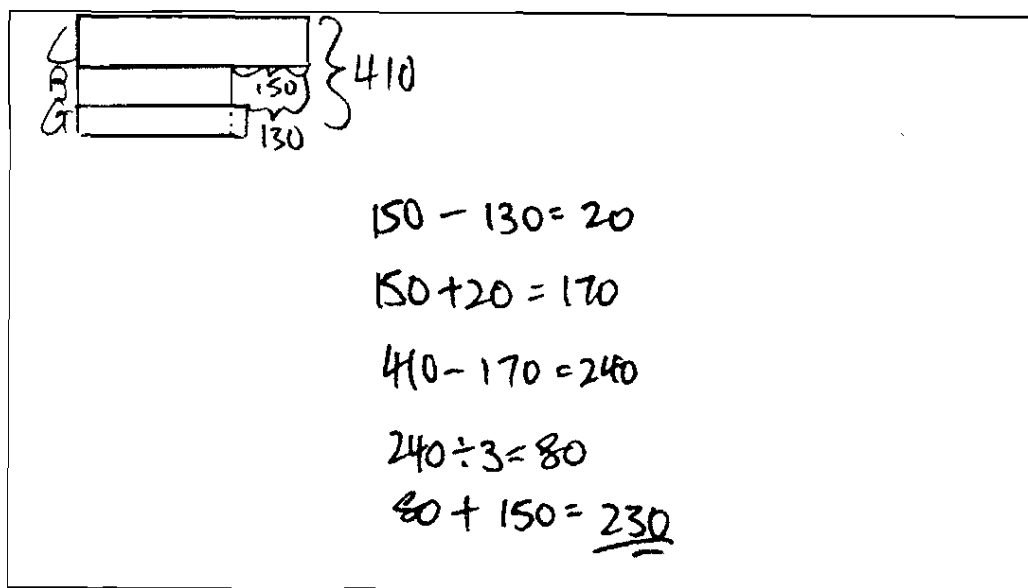 C
410
B
150
G
130
150 - 130 = 20
150 + 20 = 170
410 - 170 = 240
240 ÷ 3 = 80
80 + 150 = 230